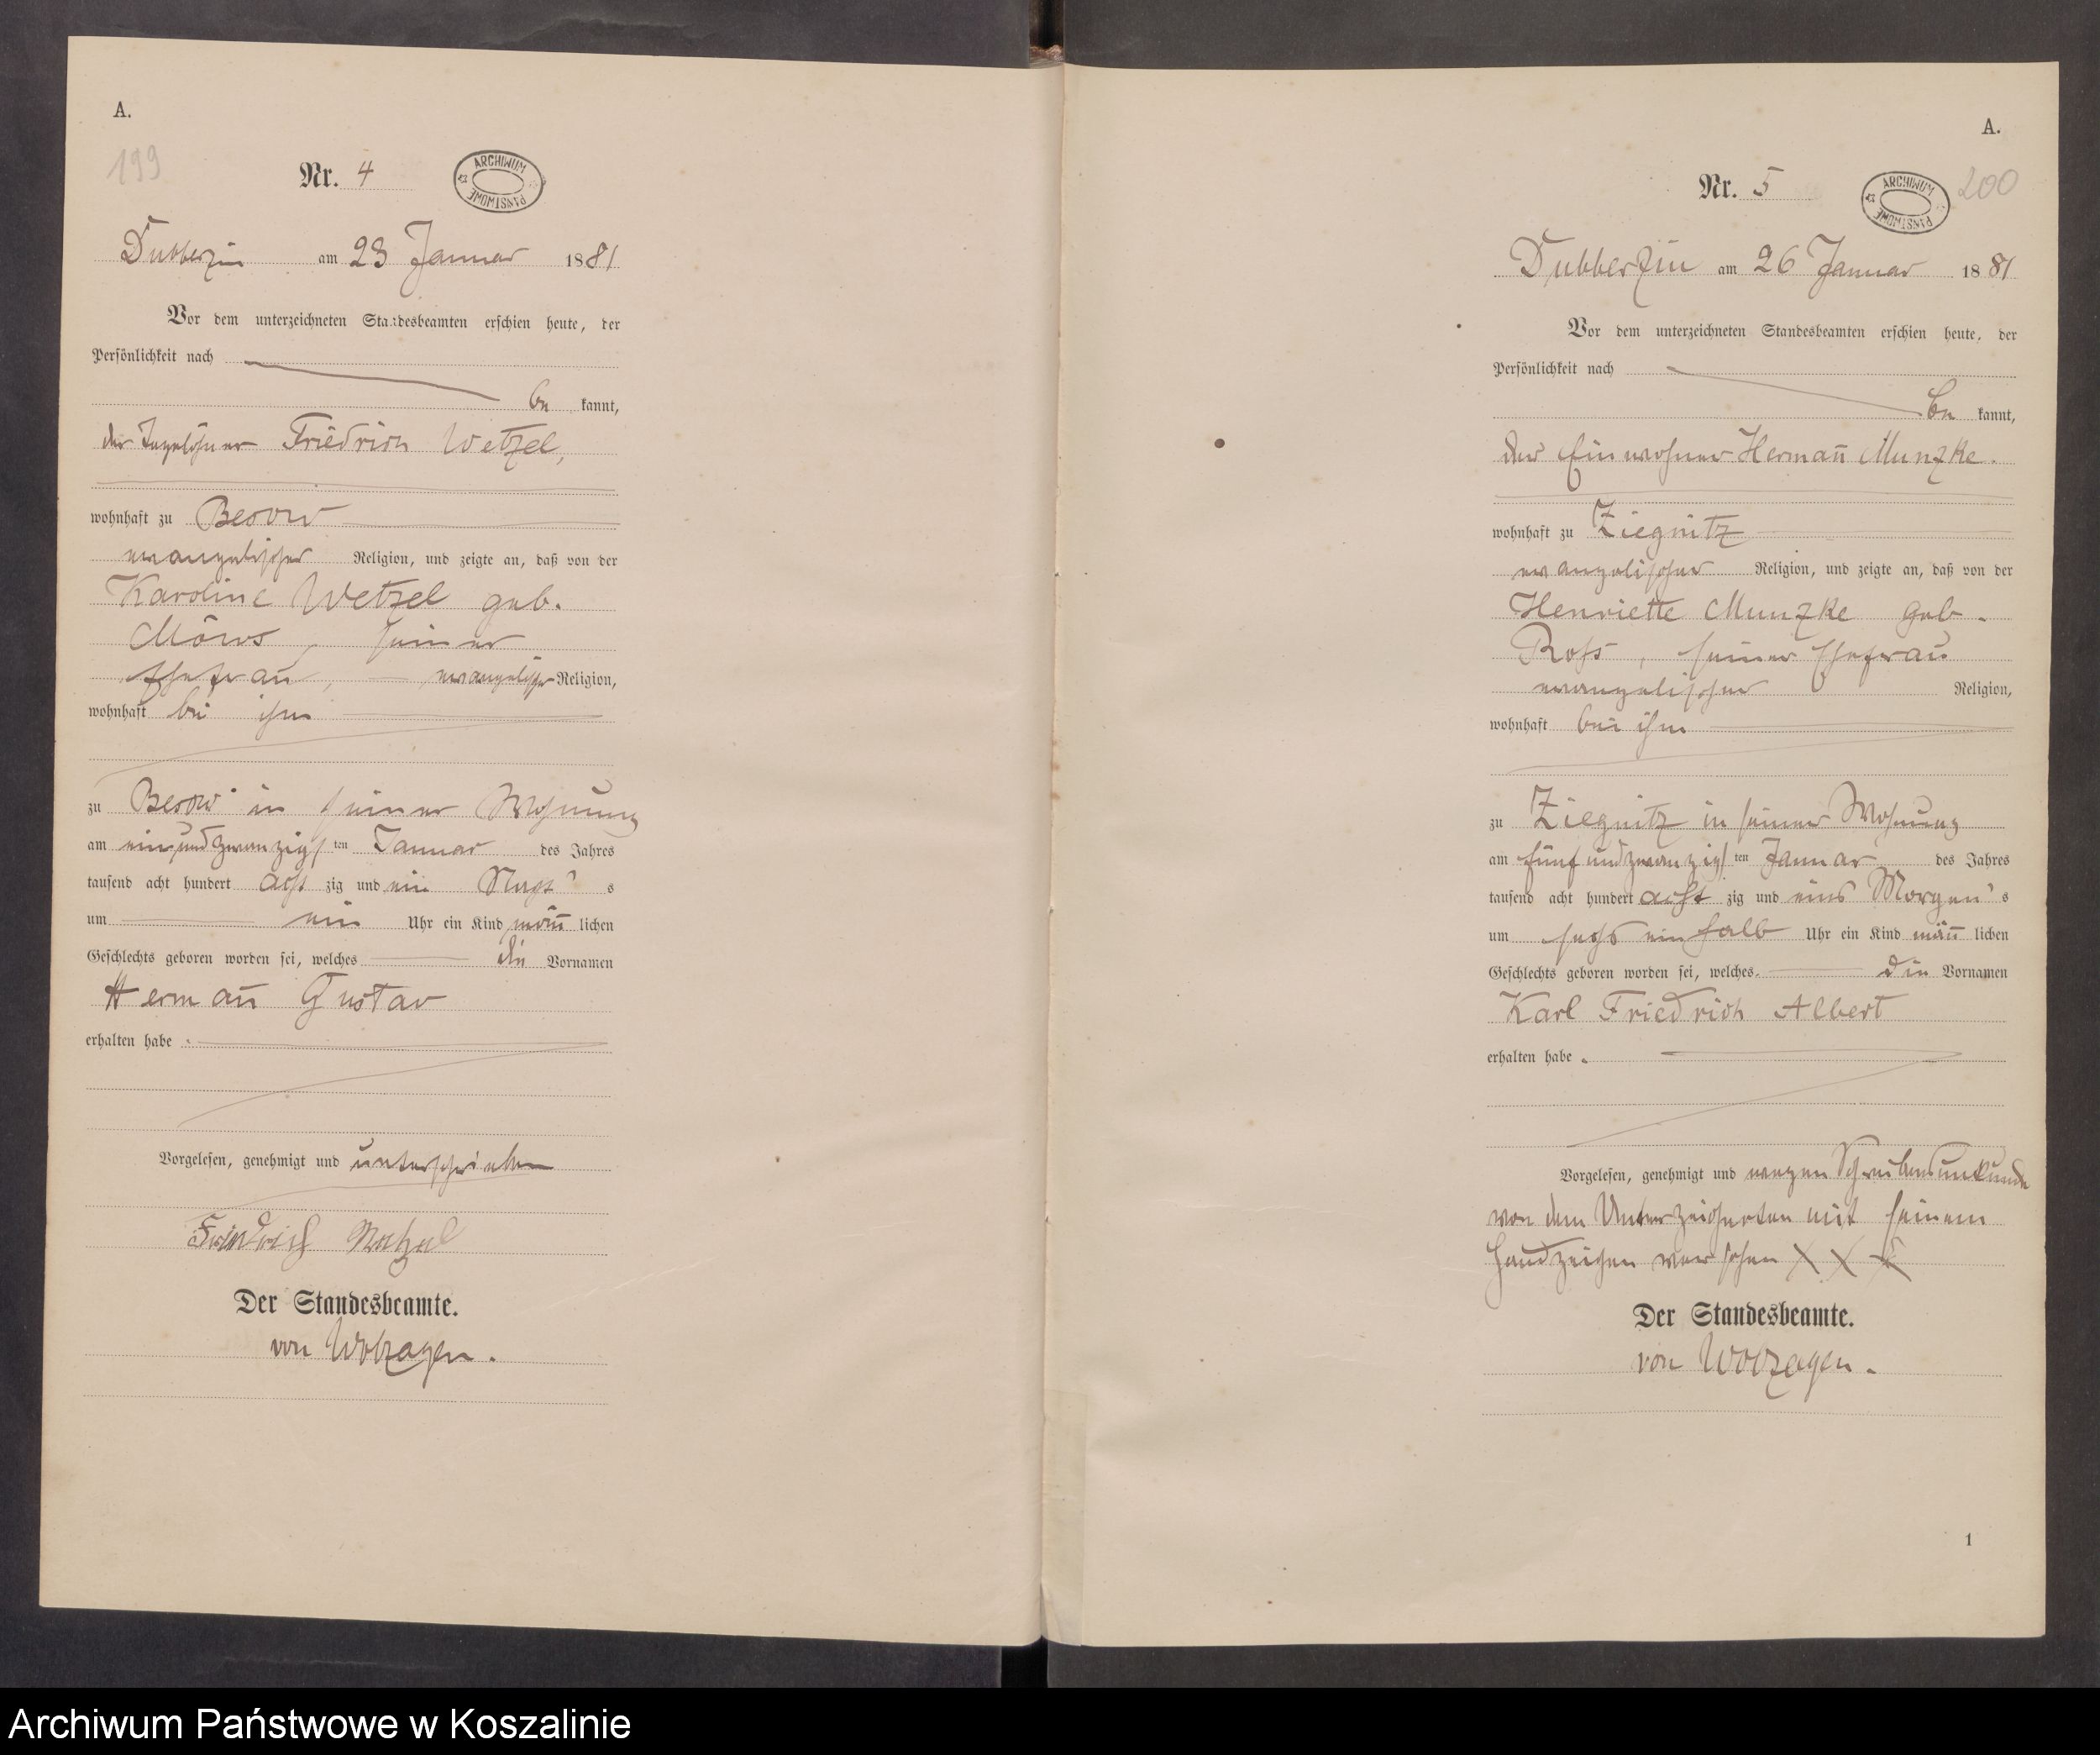 A.
199
Nr. 4
ARCHIWUM PAŃSTWOWE
Dubberzin am 23 Januar 1881
Vor dem unterzeichneten Standesbeamten erschien heute, der
Persönlichkeit nach
be kannt,
der Tagelöhner Friedrich Wetzel,
wohnhaft zu Besow
evangelischer Religion, und zeigte an, daß von der
Karoline Wetzel geb.
Möws, seiner
Ehefrau, evangelischer Religion,
wohnhaft bei ihm
zu Besow in seiner Wohnung
am einundzwanzigsten Januar des Jahres
tausend acht hundert acht zig und ein Nachts
um ein Uhr ein Kind männlichen
Geschlechts geboren worden sei, welches die Vornamen
Hermann Gustav
erhalten habe.
Vorgelesen, genehmigt und unterschrieben
Friedrich Wetzel
Der Standesbeamte.
von
A.
200
Nr. 5
ARCHIWUM PAŃSTWOWE
Dubberzin am 26 Januar 1881
Vor dem unterzeichneten Standesbeamten erschien heute, der
Persönlichkeit nach
be kannt,
der Einwohner Hermann Munzke.
wohnhaft zu Ziegnitz
evangelischer Religion, und zeigte an, daß von der
Henriette Munzke geb.
Roß, seiner Ehefrau
evangelischer Religion,
wohnhaft bei ihm
zu Ziegnitz in seiner Wohnung
am fünfundzwanzigsten Januar des Jahres
tausend acht hundert acht zig und eins Morgens
um sechs ein halb Uhr ein Kind männlichen
Geschlechts geboren worden sei, welches die Vornamen
Karl Friedrich Albert
erhalten habe.
Vorgelesen, genehmigt und wegen Schreibensunkunde
von dem Unterzeichneten mit seinem
Handzeichen versehen X X X
Der Standesbeamte.
von
1
Archiwum Państwowe w Koszalinie